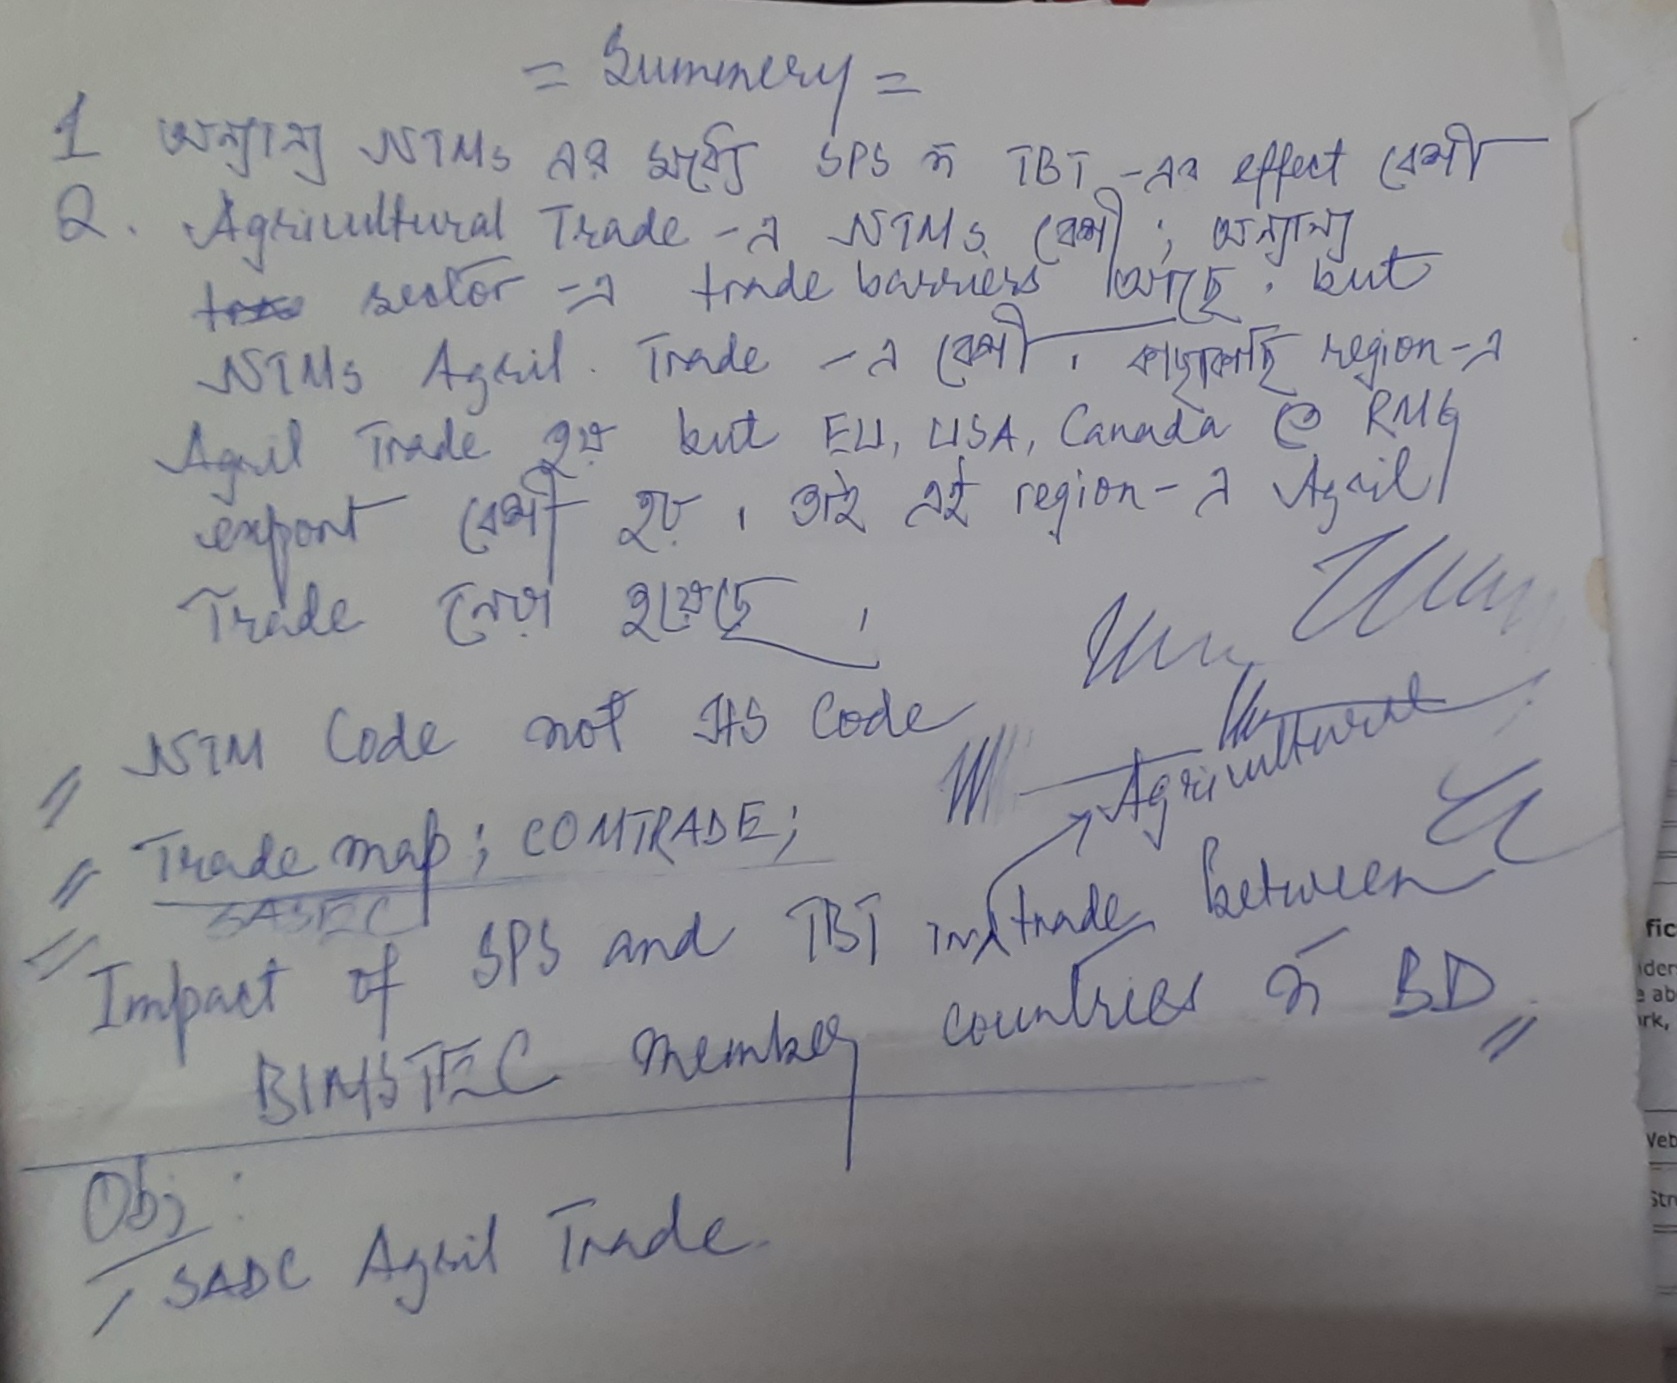 = Summery =
1 অন্যান্য NTMs এর মধ্যে SPS ও TBT -এর effect বেশী
2. Agricultural Trade -এ NTMs বেশী ; অন্যান্য
sector -এ trade barriers আছে . but
NTMs Agril. Trade -এ বেশী । কাছাকাছি region-এ
Agril Trade হয় but EU, USA, Canada তে RMG
export বেশী হয় । তাই এই region-এ Agril
Trade নেয়া হয়েছে ।
NTM Code not HS Code
// Trade map ; COMTRADE ;
SASEC
Agricultural
// Impact of SPS and TBT in trade between
BIMSTEC member countries ও BD //
Obj :
SADC Agril Trade
fic
der
ab
rk,
Web
Str